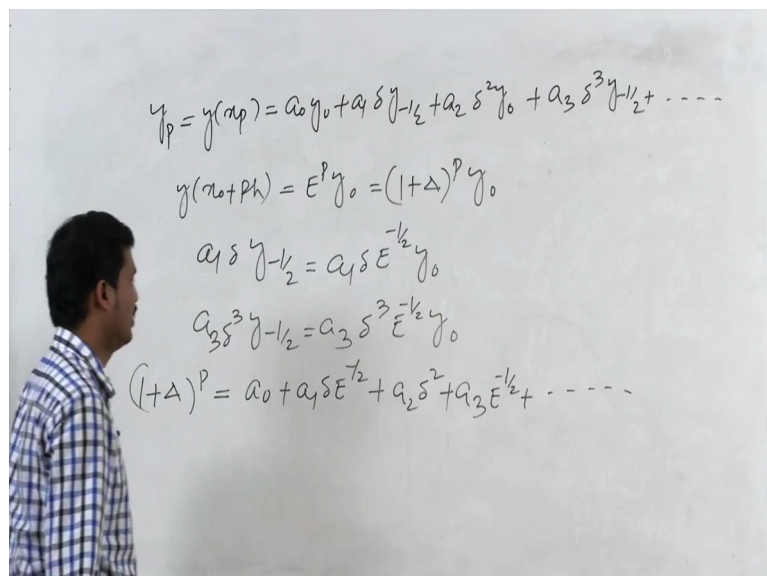 y_p = y(x_p) = a₀y₀ + a₁ δy_{-1/2} + a₂ δ²y₀ + a₃ δ³y_{-1/2} + ----
y(x₀+ph) = E^p y₀ = (1+Δ)^p y₀
a₁ δ y_{-1/2} = a₁ δ E^{-1/2} y₀
a₃ δ³ y_{-1/2} = a₃ δ³ E^{-1/2} y₀
(1+Δ)^p = a₀ + a₁ δE^{-1/2} + a₂ δ² + a₃ E^{-1/2} + -----